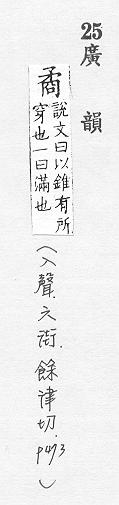 25 廣韻
矞
說文曰以錐有所
穿也一曰滿也
(入聲.六術.餘律切.p473)